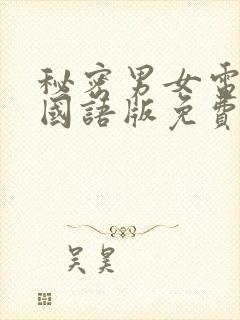 秘密男女電
國語版免費
吴昊